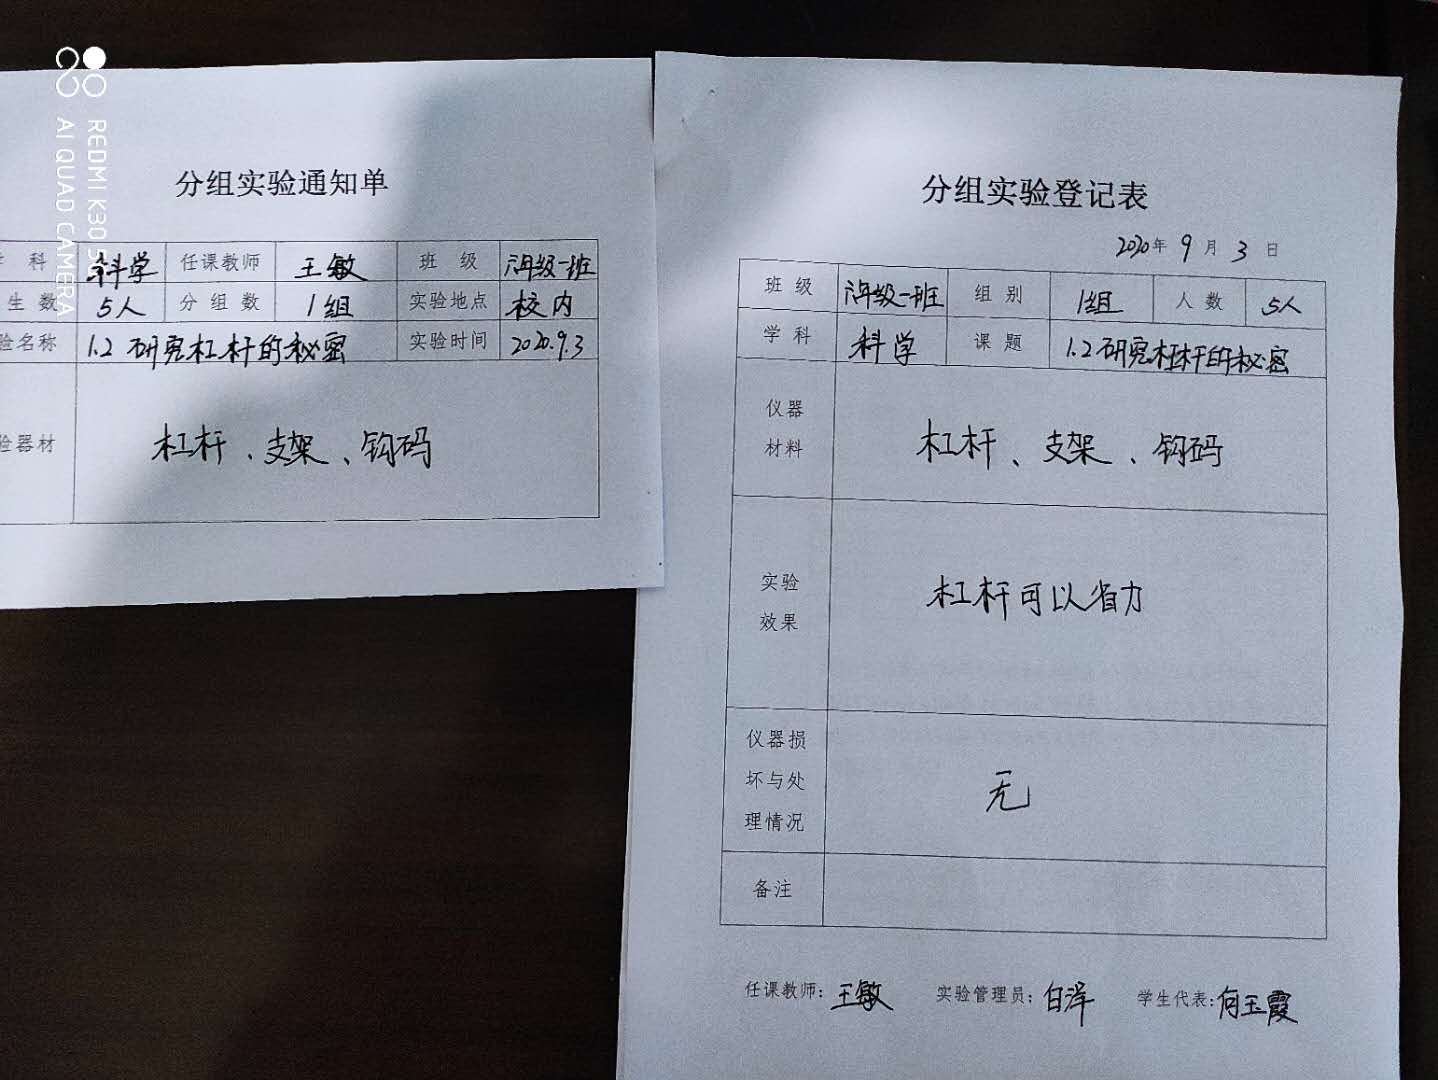 REDMI K30 5G
AI QUAD CAMERA
分组实验通知单
科 科学 任课教师 王敏 班 级 六年级一班
生 数 5人 分 组 数 1组 实验地点 校内
验名称 1.2 研究杠杆的秘密 实验时间 2020.9.3
验器材 杠杆、支架、钩码
分组实验登记表
2020年 9 月 3 日
班 级 六年级一班 组 别 1组 人 数 5人
学 科 科学 课 题 1.2 研究杠杆的秘密
仪器
材料
杠杆、支架、钩码
实验
效果
杠杆可以省力
仪器损
坏与处
理情况
无
备注
任课教师：王敏 实验管理员：白洋 学生代表：向玉霞